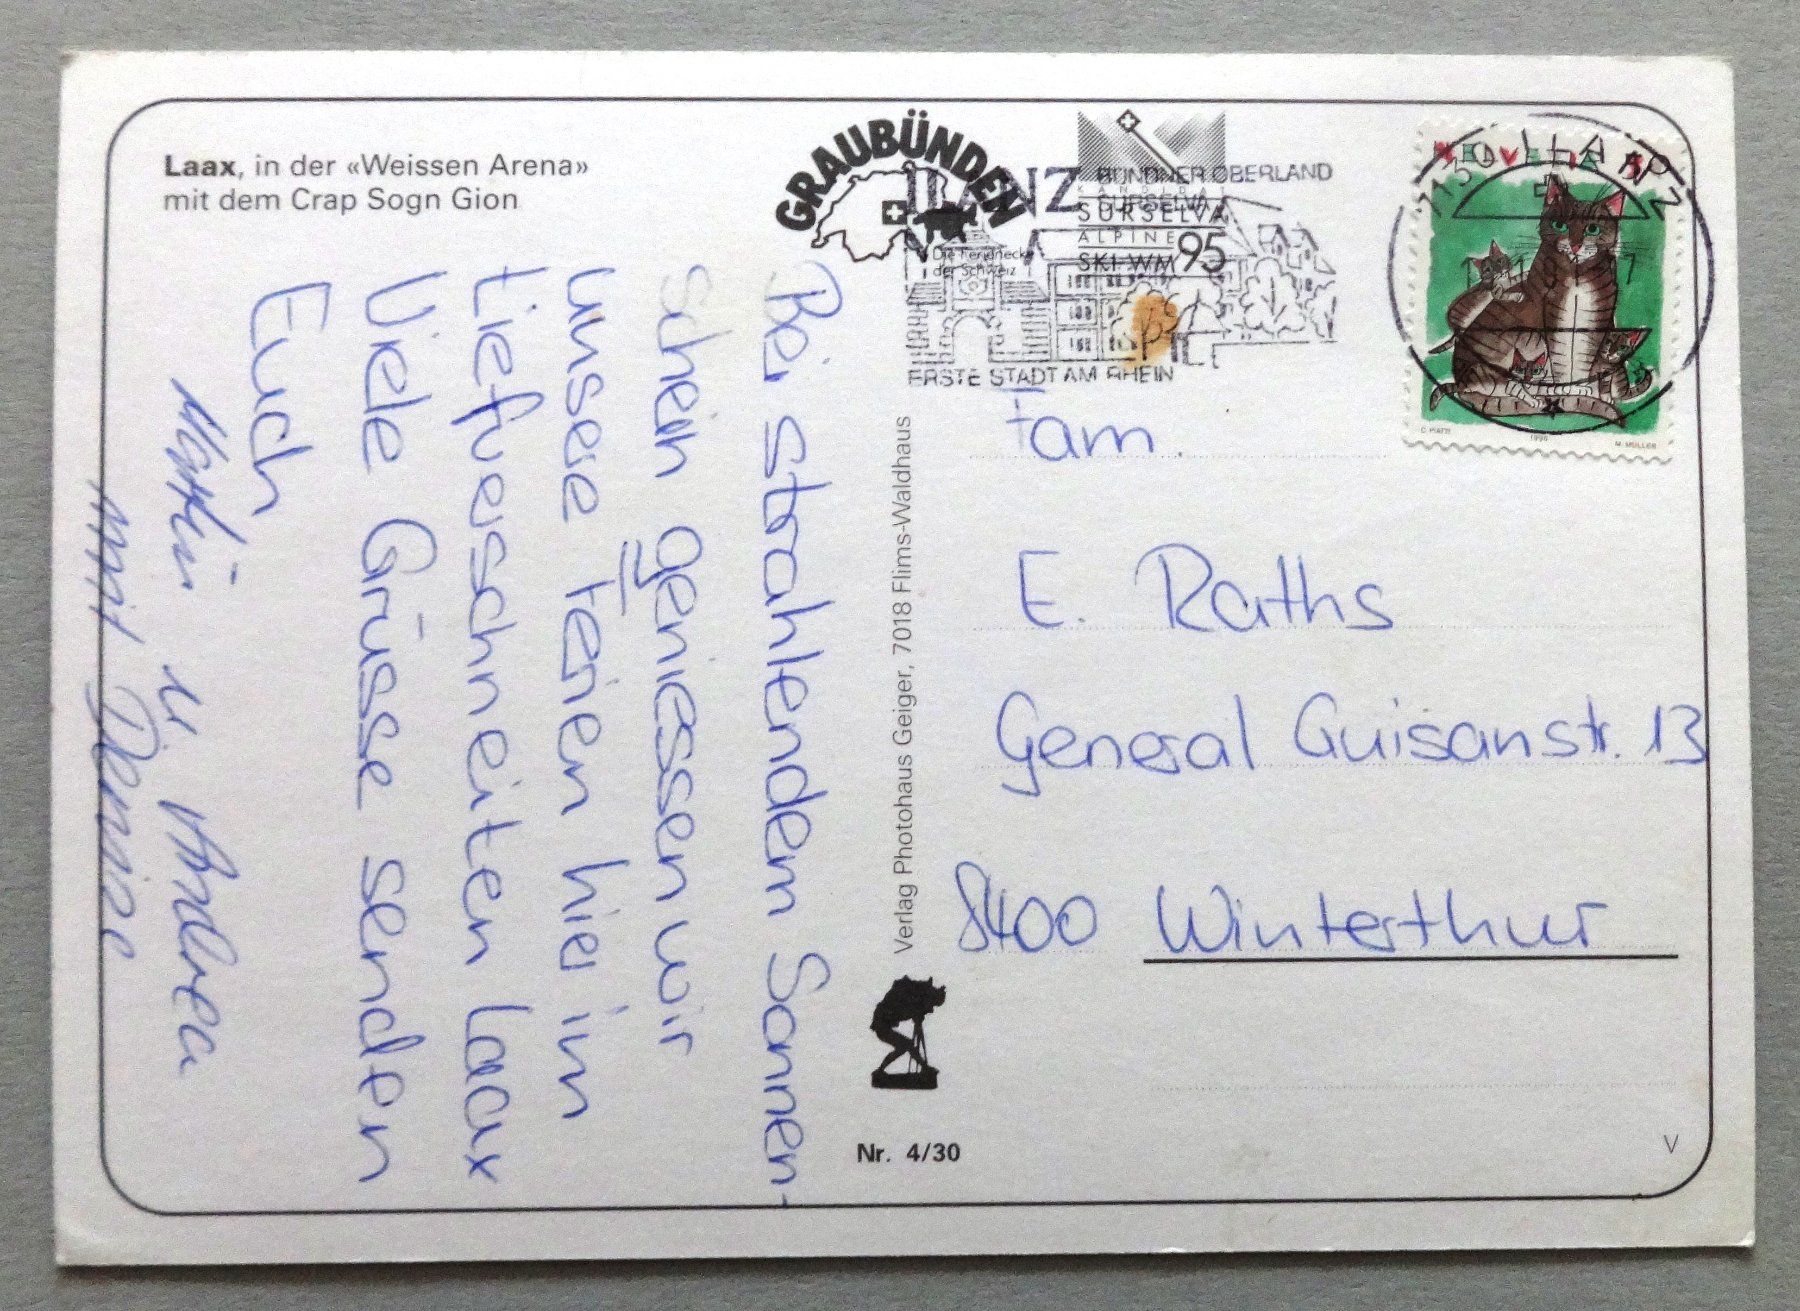 Laax, in der «Weissen Arena»
mit dem Crap Sogn Gion
Bei strahlendem Sonnen-
schein geniessen wir
unsere Ferien hier im
tiefverschneiten Laax
Viele Grüsse senden
Euch
u Andrea
mit
Verlag Photohaus Geiger, 7018 Flims-Waldhaus
Nr. 4/30
GRAUBÜNDEN
Die Ferienecke
der Schweiz
ILANZ
BÜNDNER OBERLAND
SURSELVA
KANDIDAT
SURSELVA
ALPINE
SKI WM 95
ERSTE STADT AM RHEIN
HELVETIA
7130 ILANZ
C. PIATTI
M. MÜLLER
Fam.
E. Raths
General Guisanstr. 13
8400 Winterthur
V